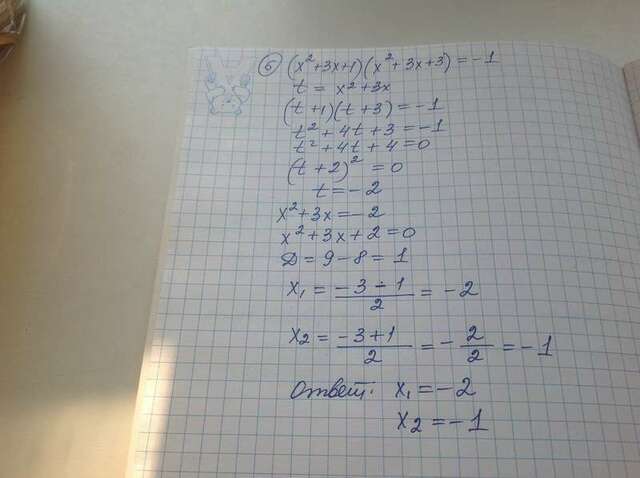 6 (x²+3x+1)(x²+3x+3)=-1
t = x²+3x
(t+1)(t+3)=-1
t²+4t+3=-1
t²+4t+4=0
(t+2)²=0
t=-2
x²+3x=-2
x²+3x+2=0
D=9-8=1
x₁ = (-3-1)/2 = -2
x₂ = (-3+1)/2 = -2/2 = -1
Ответ: x₁=-2
x₂=-1